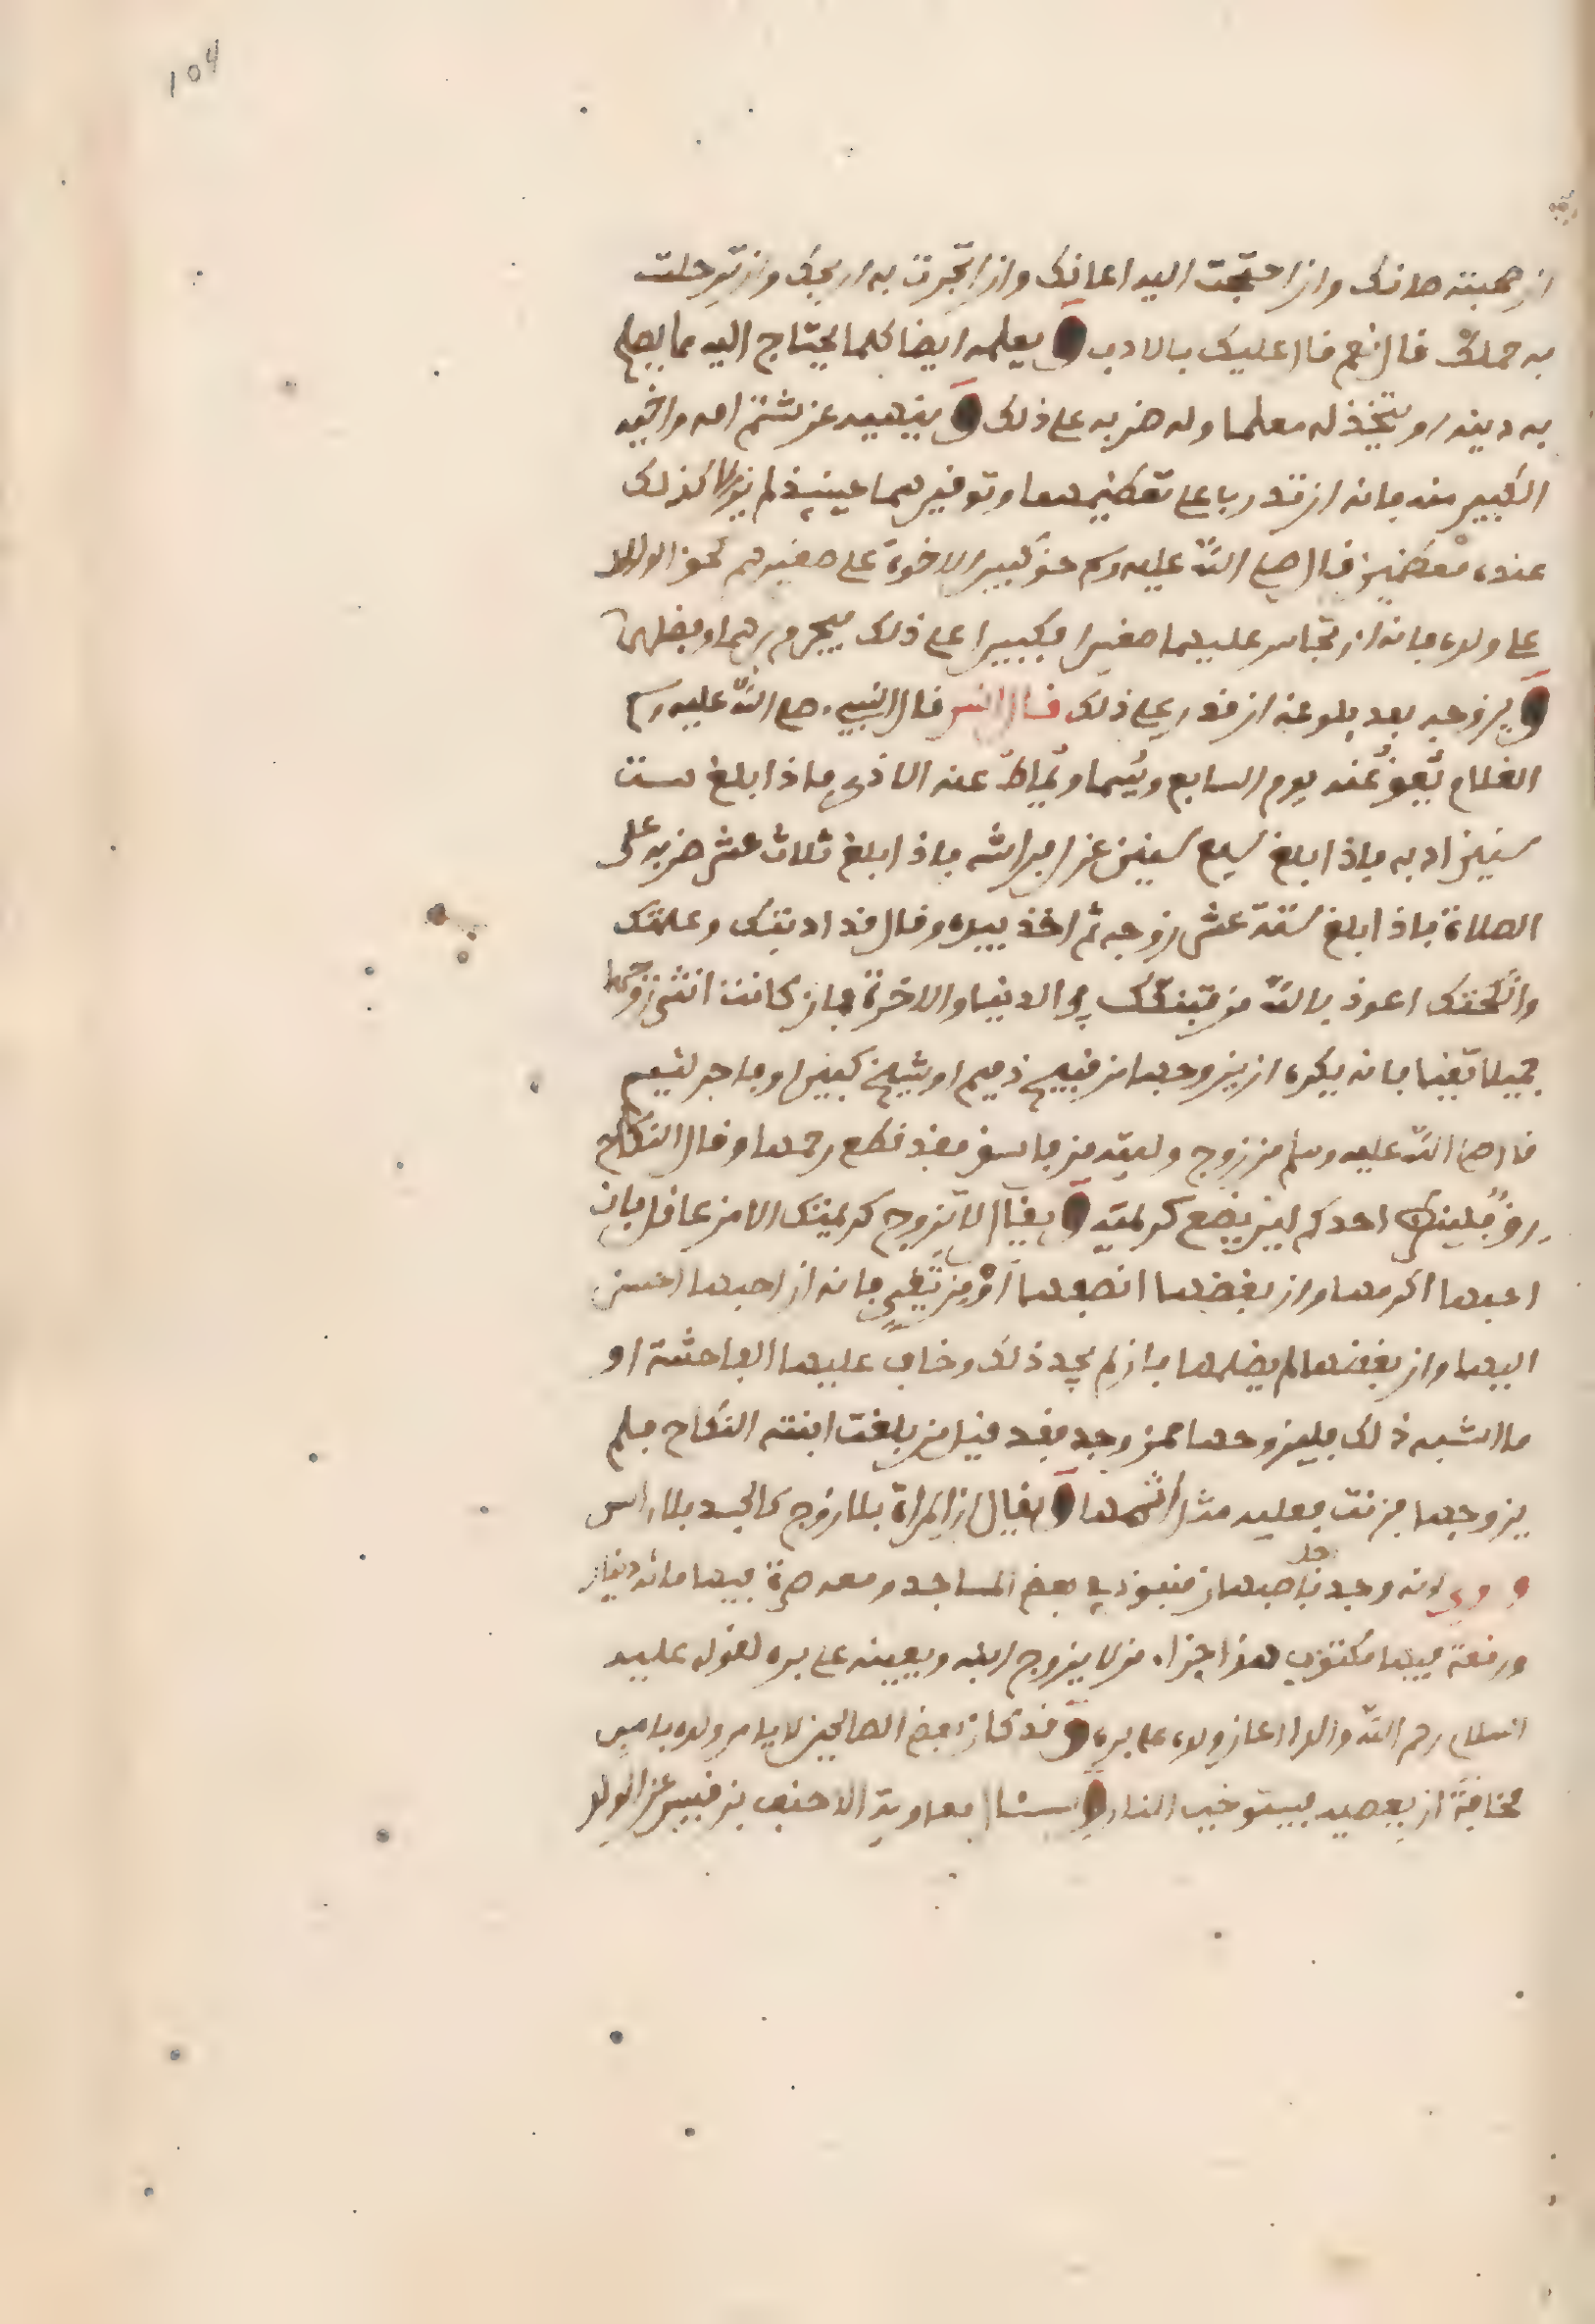 104
ان صحبته صانك وان احتجت اليه اعانك وان اتجرت به اربحك وان ترحلت
به حملك قال نعم قال عليك بالادب و يعلمه ايضا كلما يحتاج اليه مما يصلح
به دينه ويتخذ له معلما وله ضربه على ذلك و ينهيه عن شتم امه واخيه
الكبير منه فانه ان تدربا على تعظيمهما وتوقيرهما حينئذ لم يزالا كذلك
عنده معظمين قال صلى الله عليه وسلم حق كبير الاخوة على صغيرهم كحق الوالد
على ولده فانه ان تجاسر عليهما صغيرا فكبيرا على ذلك فيحرم برهما وفضلهما
و يزوجه بعد بلوغه ان قدر على ذلك قال انس قال النبيء صلى الله عليه وسلم
الغلام يعق عنه يوم السابع ويسما ويماط عنه الاذى فاذا بلغ ست
سنين ادبه فاذا بلغ سبع سنين عزل فراشه فاذا بلغ ثلاث عشر ضربه على
الصلاة فاذا بلغ ستة عشر زوجه ثم اخذ بيده وقال قد ادبتك وعلمتك
وانكحتك اعوذ بالله من فتنتك في الدنيا والاخرة فان كانت انثى زوجها
جميلا تقيا فانه يكره ان يزوجها من قبيح ذميم او شيخ كبير او فاجر لئيم
قال صلى الله عليه وسلم من زوج وليته من فاسق فقد قطع رحمها وقال النكاح
رق فلينظر احدكم اين يضع كريمته و يقال لا تزوج كريمتك الا من عاقل فان
احبها اكرمها وان بغضها انصفها او من تقي فانه ان احبها احسن
اليها وان بغضها لم يظلمها فان لم يجد ذلك وخاف عليها الفاحشة او
ما اشبه ذلك فليزوجها ممن وجد فقد قيل من بلغت ابنته النكاح فلم
يزوجها فزنت فعليه مثل اثمها و يقال ان المراة بلا زوج كالجسد بلا راس
و روي انه وجد باصبهان منبوذ في بعض المساجد ومعه صرة فيها مائة دينار
ورقعة فيها مكتوب هذا جزاء من لا يزوج ابنته ويعينه على بره لقوله عليه
السلام رحم الله والدا اعان ولده على بره و قد كان بعض الصالحين لا يامر ولده بامر
مخافة ان يعصيه فيستوجب النار و سال معاوية الاحنف بن قيس عن الولد